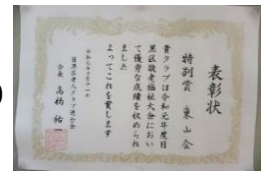 表彰状
特別賞 東山会
貴クラブは令和元年度目
黒区敬老福祉大会におい
て優秀な成績を収められ
ました
よってこれを賞します
目黒区老人クラブ連合会
会長 高橋 裕一